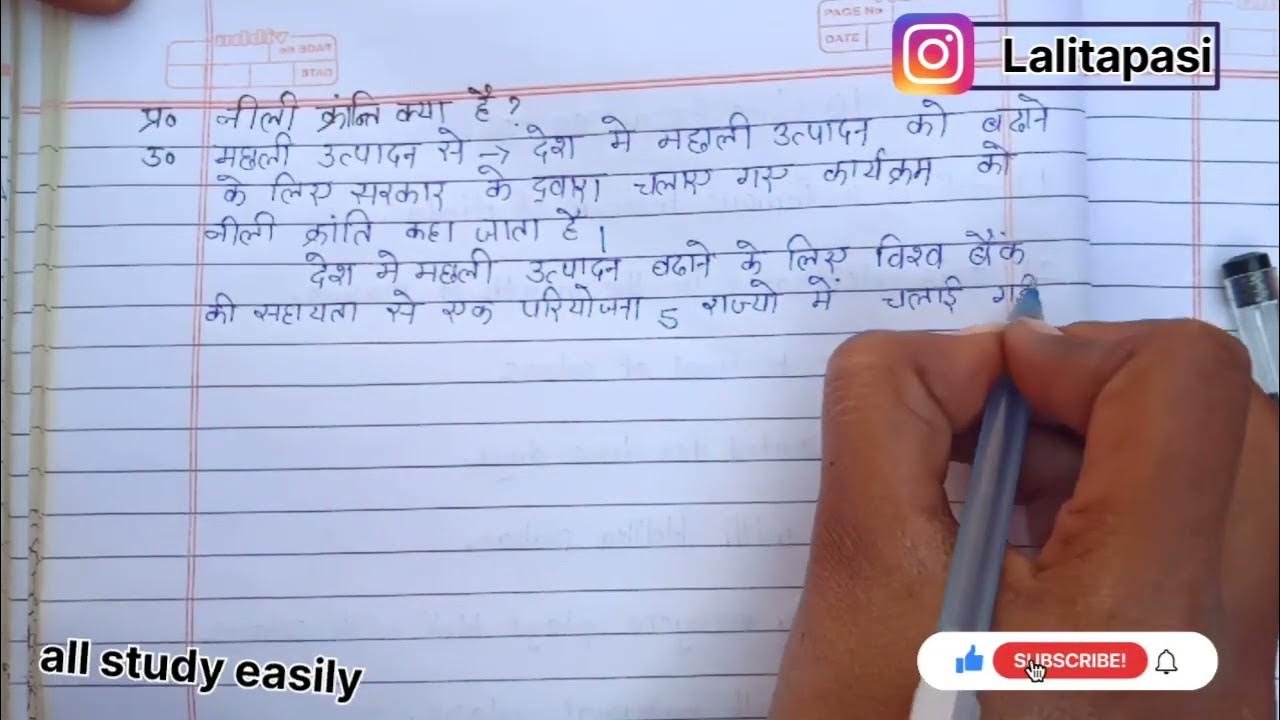 PAGE No
DATE
Lalitapasi
प्र० नीली क्रान्ति क्या है ?
उ० मछली उत्पादन से → देश मे मछली उत्पादन को बढाने
के लिए सरकार के द्वारा चलाए गए कार्यक्रम को
नीली क्रांति कहा जाता है।
देश मे मछली उत्पादन बढाने के लिए विश्व बैंक
की सहायता से एक परियोजना 5 राज्यो में चलाई
all study easily
SUBSCRIBE!